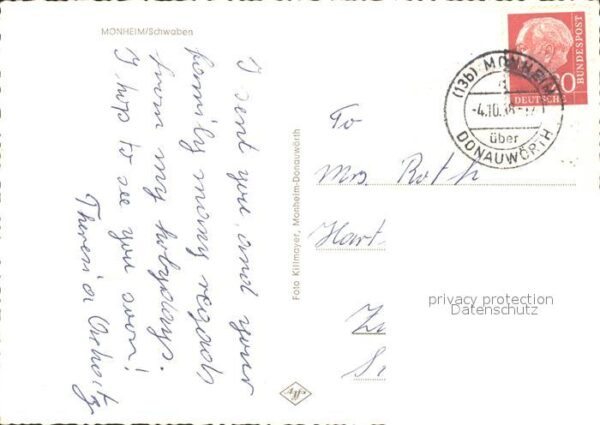 MONHEIM/Schwaben
I sent you and your
family many regards
from my holydays.
I hop to see you soon!
Theresia
Foto Killmayer, Monheim-Donauwörth
Agfa
To
Mrs. Roth
Hart
Za
DEUTSCHE
BUNDESPOST
20
(13b) MONHEIM
-4.10.
über
DONAUWÖRTH
privacy protection
Datenschutz